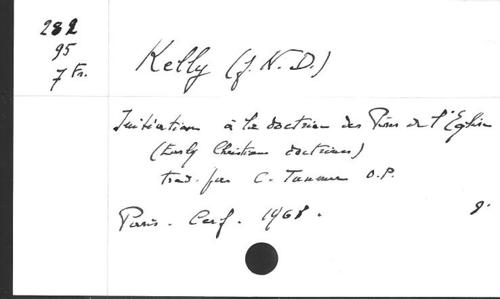 282
95
7 Fr.
Kelly (J. N. D.)
Initiation à la doctrine des Pères de l'Eglise
(Early Christian doctrines)
trad. par C. Tunmer O.P.
Paris - Cerf. 1968.